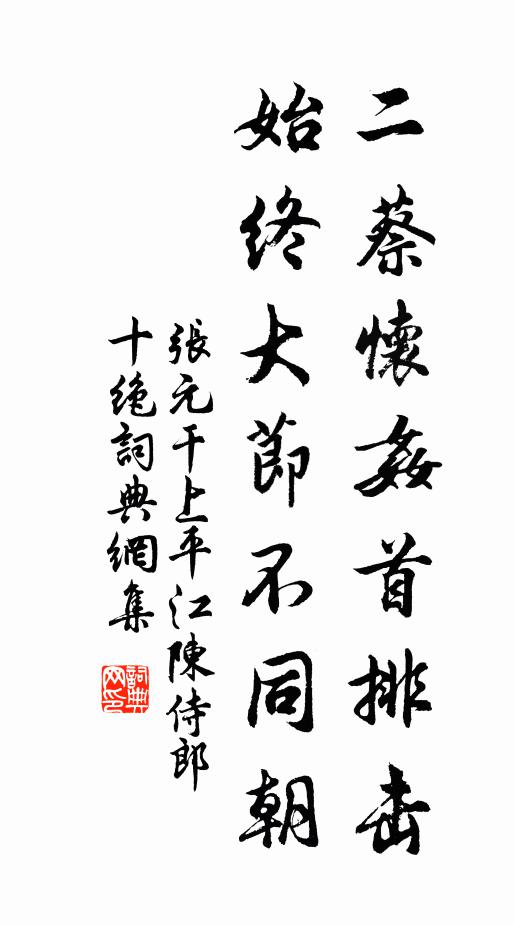 二蔡懷姦首排击
始終大節不同朝
張元干上平江陳侍郎
十絶詞典網集
詞典
网印